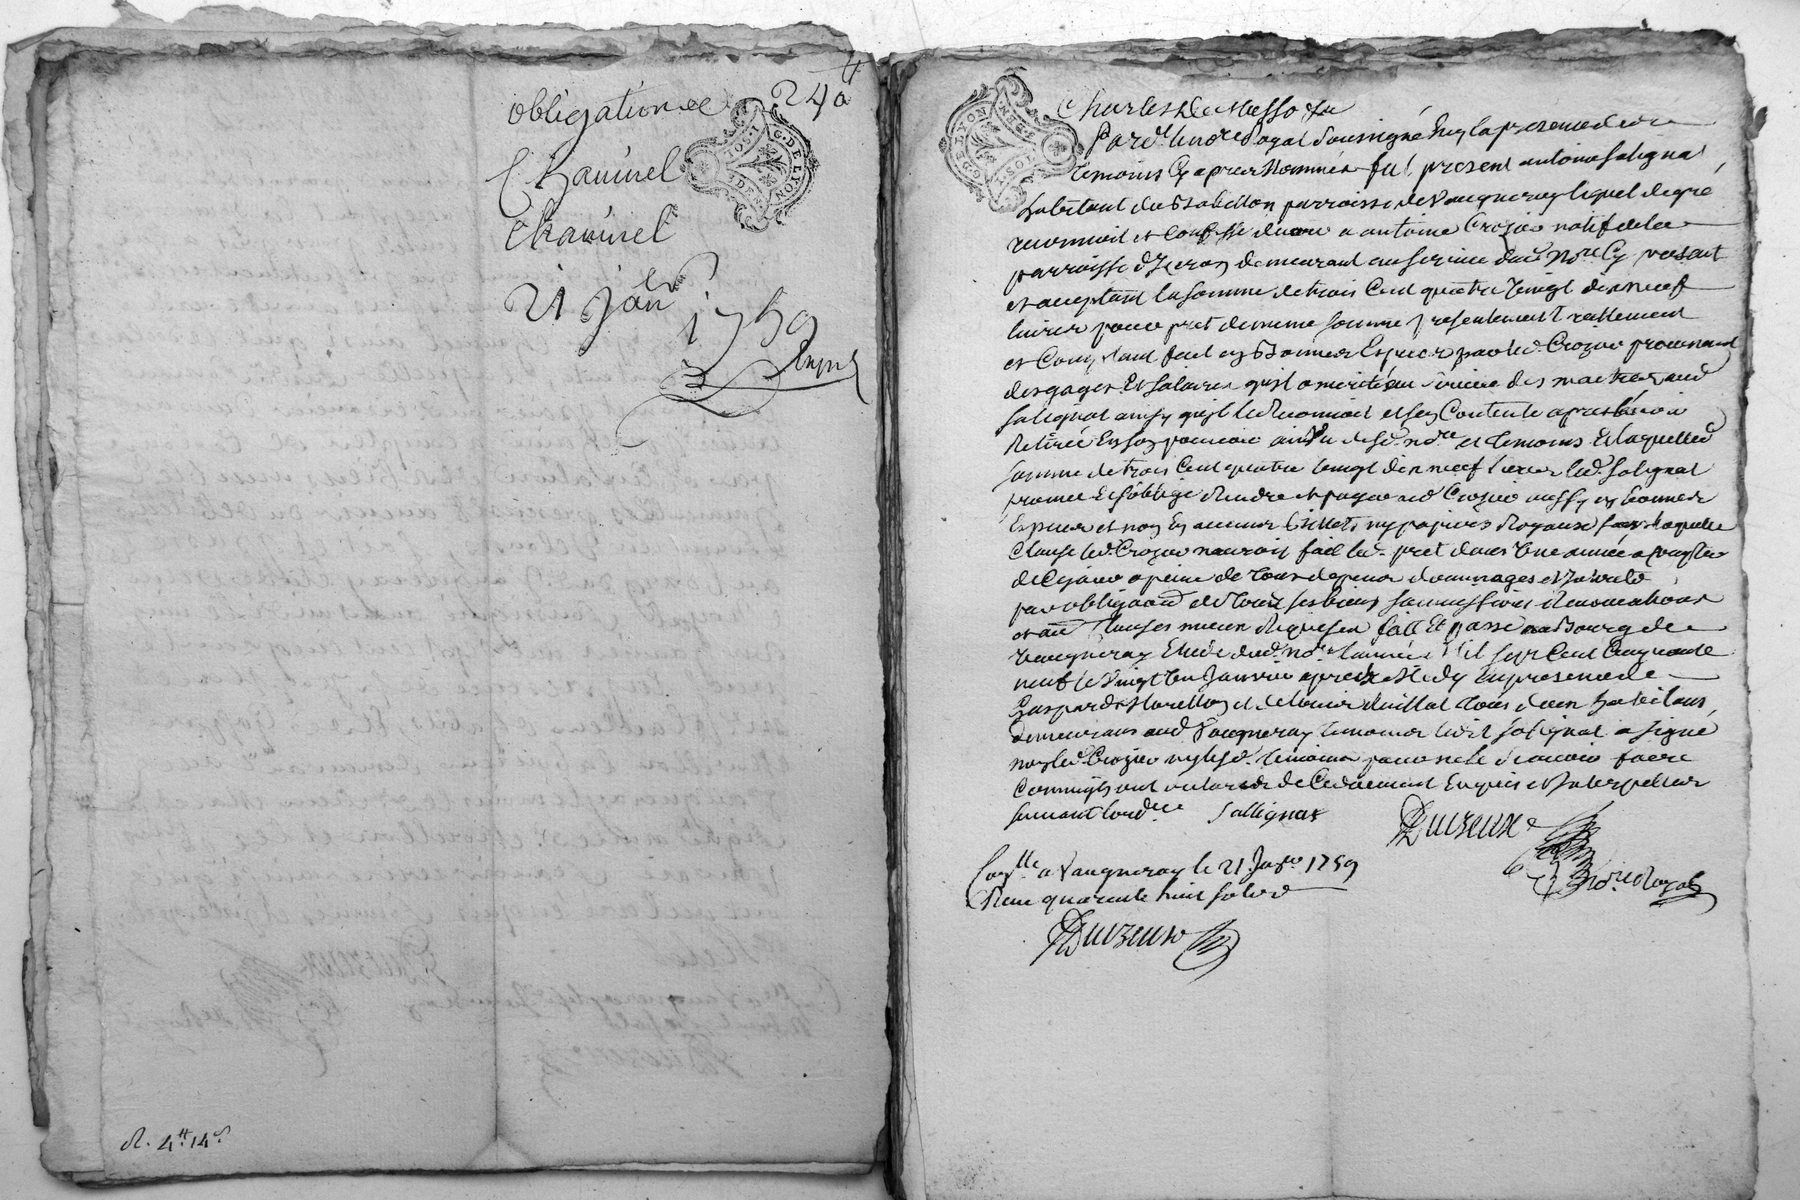 obligation de 240 ₶
Chavinel
Chavinel
21 Jan
1759
R. 4₶ 14s
G. DE LYON
G. DE LYON
Par dt le nore Royal soussigné En la presence de
temoins Cy apres Nommés fut present antoine Salignat
habitant du parroisse de Vaugneray lequel de gré
reconnoit et Confesse devoir a antoine Crozier natif de la
parroisse d'Izeron demeurant au service dud. Nore Cy present
et acceptant la somme de trois Cent quatre vingt dix neuf
livres pour pret de meme somme presentement reellement
et Comptant fait en Bonnes Especes par led. Crozier provenant
des gages Et salaires qu'il a merité au service des maitres led.
Salignat ainsy qu'il le Reconnoit et s'en Contente apres l'avoir
Retirée En son pouvoir au Vu desd. nore et temoins Et laquelle
somme de trois Cent quatre vingt dix neuf livres led. Salignat
promet Et s'oblige Rendre et payer aud. Crozier aussy en bonnes
Especes et non En aucuns billets ny papiers Royaux sans laquelle
Clause led. Crozier n'auroit fait led. pret dans Une année a Compter
de Cejour a peine de tous depens dommages et Interets
par obligaon de tous ses biens soumissions Renonciations
et au Clauses mieux Requises fait Et passé au Bourg de
Vaugneray Etude dud. nore l'année Mil sept Cent Cinquante
neuf le Vingt Un Janvier apres Midy En presence de
Gaspard et tous deux habitans
demeurans aud. Vaugneray temoins led. Salignat a signé
non led. Crozier ny lesd. temoins pour ne le sçavoir faire
Comm'ils ont declaré de Ce duement Enquis et Interpellés
suivant l'ordce Sallignat
Duizeux
nore Royal
Conllé a Vaugneray le 21 Janer 1759
Receu quarante huit sols
Duizeux